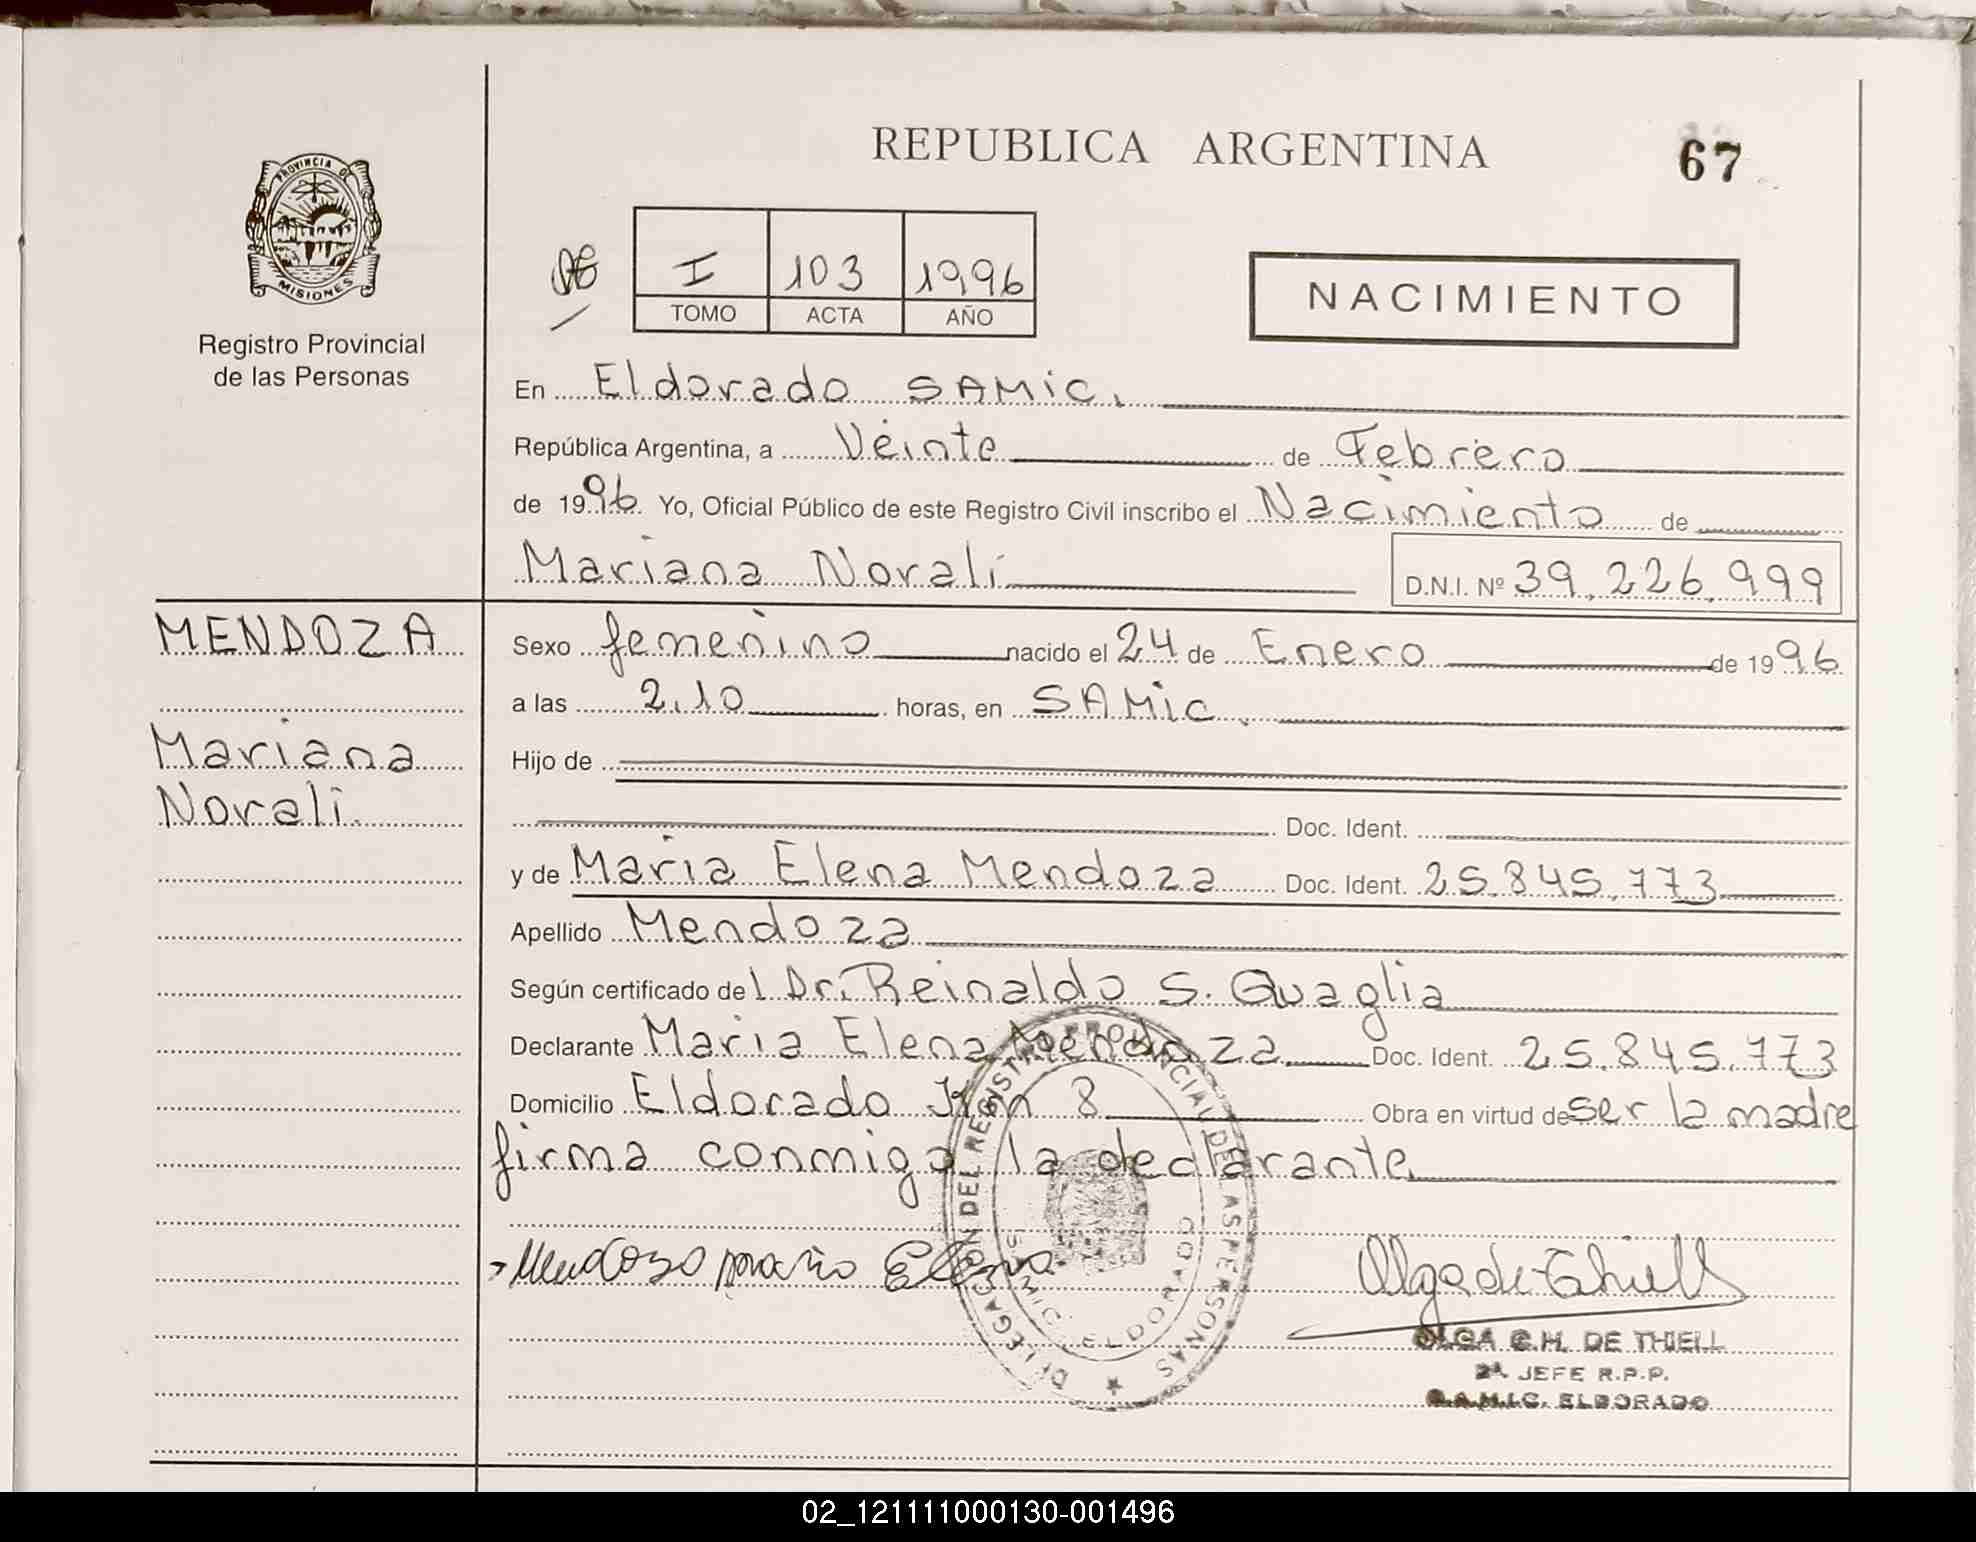 REPUBLICA ARGENTINA
67
PROVINCIA DE
MISIONES
Registro Provincial
de las Personas
I 103 1996
TOMO ACTA AÑO
NACIMIENTO
En Eldorado SAMic.
República Argentina, a Veinte de Febrero
de 1996 Yo, Oficial Público de este Registro Civil inscribo el Nacimiento de
Mariana Noralí D.N.I. Nº 39.226.999
MENDOZA
Mariana
Noralí.
Sexo femenino nacido el 24 de Enero de 1996
a las 2.10 horas, en SAMic.
Hijo de
Doc. Ident.
y de Maria Elena Mendoza Doc. Ident. 25.845.773
Apellido Mendoza
Según certificado del Dr. Reinaldo S. Quaglia
Declarante Maria Elena Mendoza Doc. Ident. 25.845.773
Domicilio Eldorado Km 8 Obra en virtud de ser la madre
firma conmigo la declarante
Mendoza maria Elena
Olga de Thiell
OLGA C.H. DE THIELL
2ª JEFE R.P.P.
S.A.M.I.C. ELDORADO
DELEGACION DEL REGISTRO PROVINCIAL DE LAS PERSONAS
ELDORADO
02_121111000130-001496